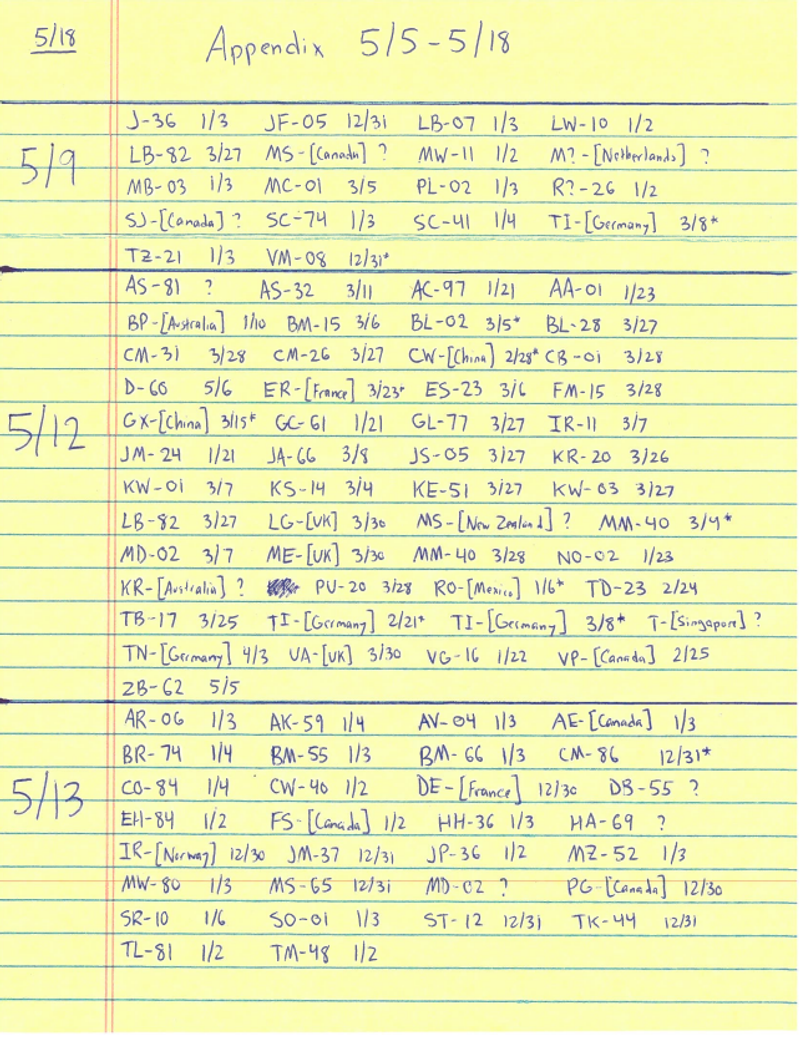 5/18 Appendix 5/5-5/18
J-36 1/3 JF-05 12/31 LB-07 1/3 LW-10 1/2
5/9 LB-82 3/27 MS-[Canada] ? MW-11 1/2 M?-[Netherlands] ?
MB-03 1/3 MC-01 3/5 PL-02 1/3 R?-26 1/2
SJ-[Canada] ? SC-74 1/3 SC-41 1/4 TI-[Germany] 3/8*
TZ-21 1/3 VM-08 12/31*
AS-81 ? AS-32 3/11 AC-97 1/21 AA-01 1/23
BP-[Australia] 1/10 BM-15 3/6 BL-02 3/5* BL-28 3/27
CM-31 3/28 CM-26 3/27 CW-[China] 2/28* CB-01 3/28
D-60 5/6 ER-[France] 3/23* ES-23 3/6 FM-15 3/28
5/12 GX-[China] 3/15* GC-61 1/21 GL-77 3/27 IR-11 3/7
JM-24 1/21 JA-66 3/8 JS-05 3/27 KR-20 3/26
KW-01 3/7 KS-14 3/4 KE-51 3/27 KW-03 3/27
LB-82 3/27 LG-[UK] 3/30 MS-[New Zealand] ? MM-40 3/4*
MD-02 3/7 ME-[UK] 3/30 MM-40 3/28 NO-02 1/23
KR-[Australia] ? PU-20 3/28 RO-[Mexico] 1/6* TD-23 2/24
TB-17 3/25 TI-[Germany] 2/21* TI-[Germany] 3/8* T-[Singapore] ?
TN-[Germany] 4/3 UA-[UK] 3/30 VG-16 1/22 VP-[Canada] 2/25
ZB-62 5/5
AR-06 1/3 AK-59 1/4 AV-04 1/3 AE-[Canada] 1/3
BR-74 1/4 BM-55 1/3 BM-66 1/3 CM-86 12/31*
5/13 CO-84 1/4 CW-40 1/2 DE-[France] 12/30 DB-55 ?
EH-84 1/2 FS-[Canada] 1/2 HH-36 1/3 HA-69 ?
IR-[Norway] 12/30 JM-37 12/31 JP-36 1/2 MZ-52 1/3
MW-80 1/3 MS-65 12/31 MD-02 ? PG-[Canada] 12/30
SR-10 1/6 SO-01 1/3 ST-12 12/31 TK-44 12/31
TL-81 1/2 TM-48 1/2